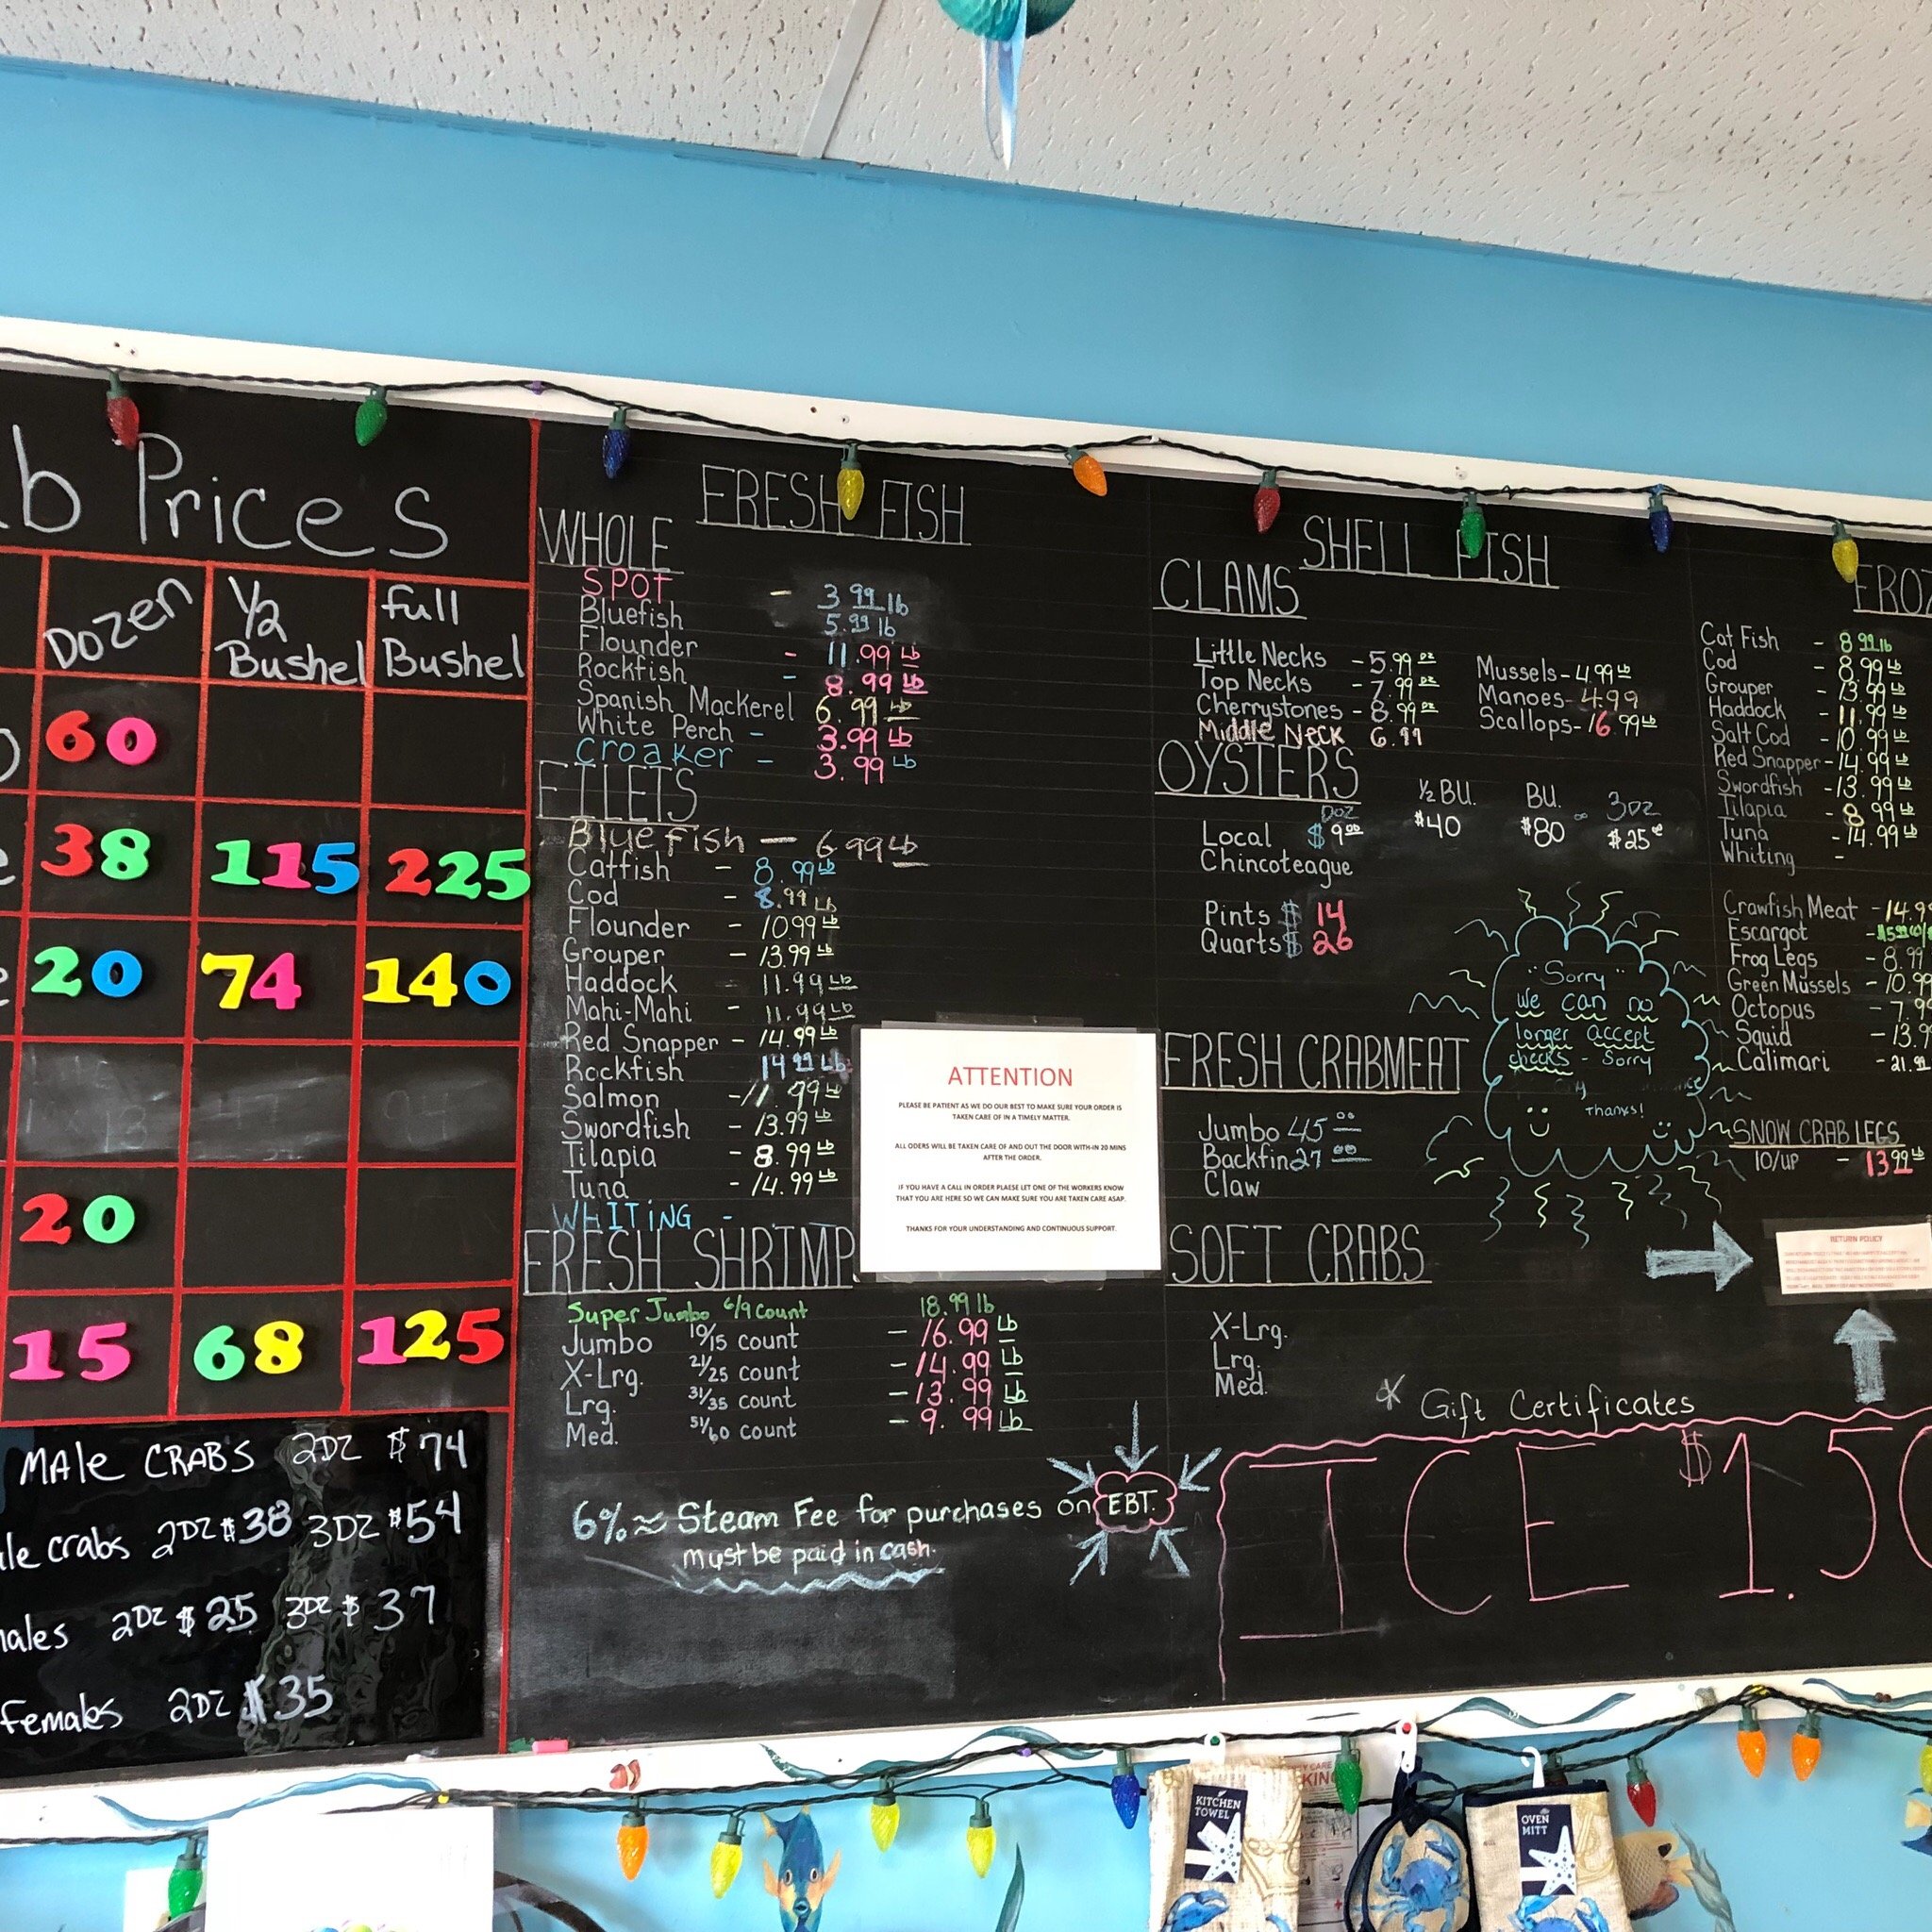 b Prices
Dozen 1/2 Bushel full Bushel
60
38 115 225
20 74 140
20
15 68 125
MAle CRABS 2DZ $74
le crabs 2DZ $38 3DZ $54
ales 2DZ $25 3DZ $37
females 2DZ $35
FRESH FISH
WHOLE
SPOT - 3.99 lb
Bluefish 5.99 lb
Flounder - 11.99 Lb
Rockfish - 8.99 Lb
Spanish Mackerel 6.99 Lb
White Perch - 3.99 Lb
Croaker - 3.99 Lb
FILETS
Bluefish - 6.99 Lb
Catfish - 8.99 Lb
Cod - 8.99 Lb
Flounder - 10.99 Lb
Grouper - 13.99 Lb
Haddock 11.99 Lb
Mahi-Mahi - 11.99 Lb
Red Snapper - 14.99 Lb
Rockfish 14.99 Lb
Salmon - 11.99 Lb
Swordfish - 13.99 Lb
Tilapia - 8.99 Lb
Tuna - 14.99 Lb
WHITING -
FRESH SHRIMP
Super Jumbo 6/9 count 18.99 lb
Jumbo 10/15 count - 16.99 Lb
X-Lrg. 21/25 count - 14.99 Lb
Lrg. 31/35 count - 13.99 Lb
Med. 51/60 count - 9.99 Lb
6% ≈ Steam Fee for purchases on EBT.
must be paid in cash.
ATTENTION
PLEASE BE PATIENT AS WE DO OUR BEST TO MAKE SURE YOUR ORDER IS
TAKEN CARE OF IN A TIMELY MATTER.
ALL ODERS WILL BE TAKEN CARE OF AND OUT THE DOOR WITH-IN 20 MINS
AFTER THE ORDER.
IF YOU HAVE A CALL IN ORDER PLAESE LET ONE OF THE WORKERS KNOW
THAT YOU ARE HERE SO WE CAN MAKE SURE YOU ARE TAKEN CARE ASAP.
THANKS FOR YOUR UNDERSTANDING AND CONTINUOUS SUPPORT.
SHELL FISH
CLAMS
Little Necks - 5.99 DZ
Top Necks - 7.99 DZ
Cherrystones - 8.99 DZ
Middle Neck 6.99
Mussels - 4.99 Lb
Manoes - 4.99
Scallops - 16.99 Lb
OYSTERS
DOZ 1/2 BU. BU. 3DZ
Local $9.00 $40 $80 $25
Chincoteague
Pints $ 14
Quarts $ 26
"Sorry"
we can no
longer accept
checks - Sorry
Thanks!
FRESH CRABMEAT
Jumbo 45 00
Backfin 27 00
Claw
SOFT CRABS
X-Lrg.
Lrg.
Med.
* Gift Certificates
ICE $1.50
FROZ
Cat Fish - 8.99 lb
Cod - 8.99 Lb
Grouper - 13.99 Lb
Haddock - 11.99 Lb
Salt Cod - 10.99 Lb
Red Snapper - 14.99 Lb
Swordfish - 13.99 Lb
Tilapia - 8.99 Lb
Tuna - 14.99 Lb
Whiting -
Crawfish Meat - 14.9
Escargot
Frog Legs - 8.99
Green Mussels - 10.99
Octopus - 7.9
Squid - 13.9
Calimari - 21.9
SNOW CRAB LEGS
10/UP - 13.99 Lb
RETURN POLICY
KITCHEN
TOWEL
KING
OVEN
MITT